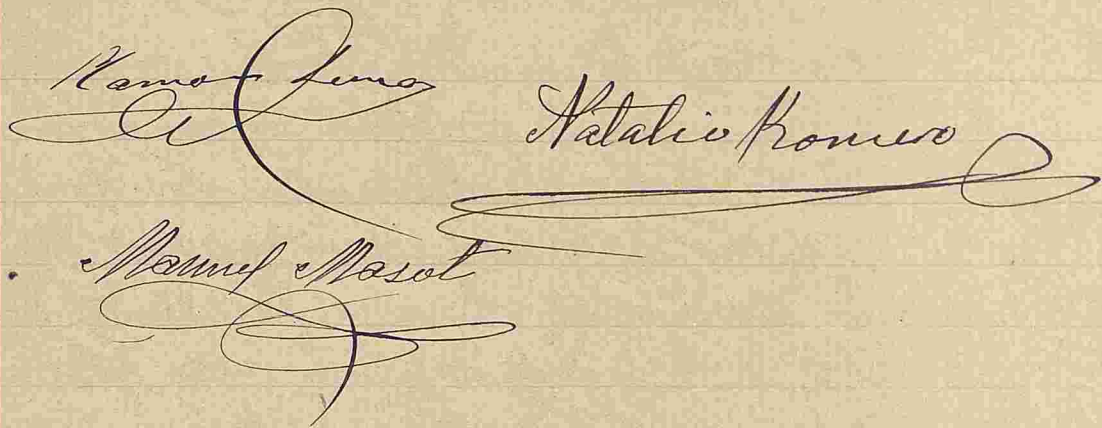 Ramon Luna
Natalio Romero
Manuel Masot